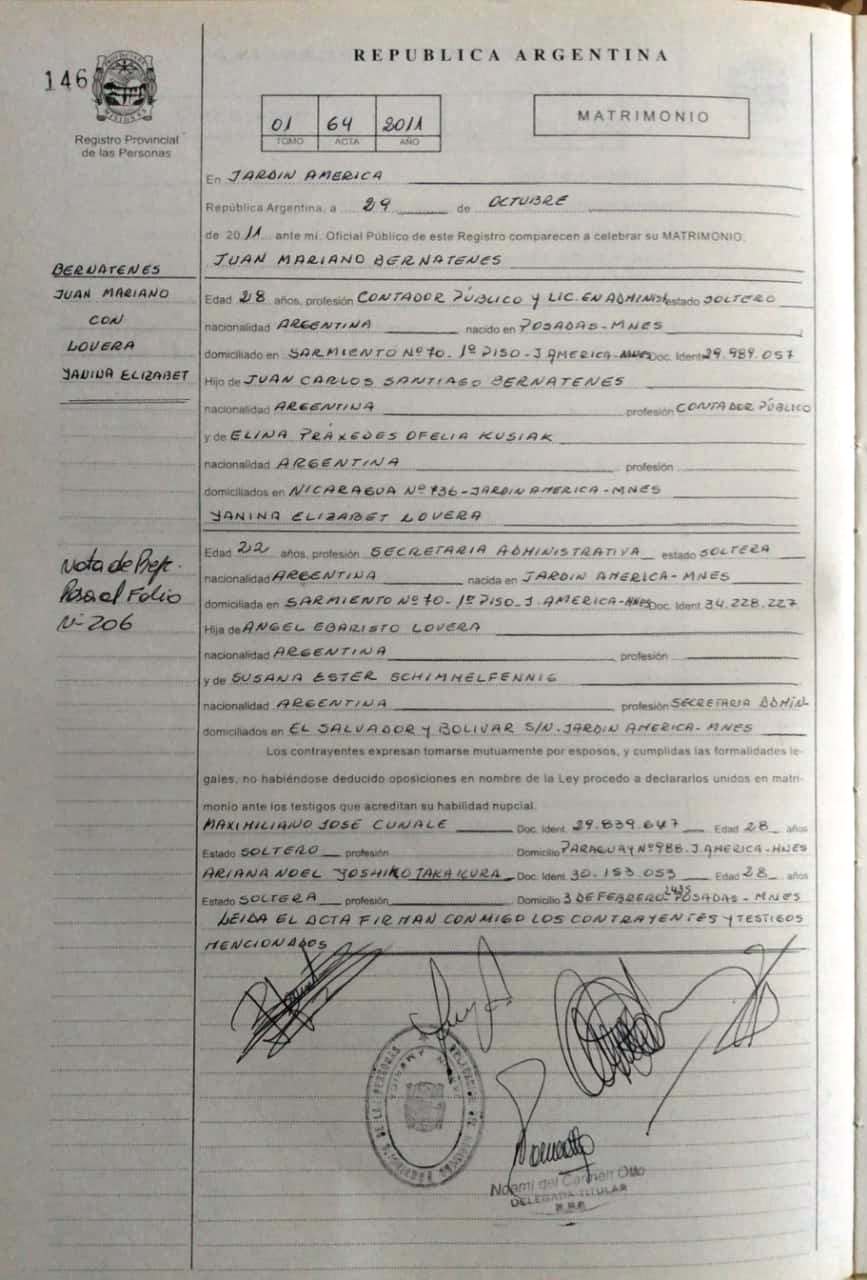 REPUBLICA ARGENTINA
146
Registro Provincial
de las Personas
01 64 2011
TOMO ACTA AÑO
MATRIMONIO
En JARDIN AMERICA
República Argentina, a 29 de OCTUBRE
de 2011 ante mí. Oficial Público de este Registro comparecen a celebrar su MATRIMONIO.
JUAN MARIANO BERNATENES
BERNATENES
JUAN MARIANO
CON
LOVERA
YANINA ELIZABET
Edad 28 años, profesión CONTADOR PÚBLICO Y LIC. EN ADMINIST estado SOLTERO
nacionalidad ARGENTINA nacido en POSADAS-MNES
domiciliado en SARMIENTO Nº 70-1º PISO-J. AMERICA-MNES Doc. Ident 29.989.057
Hijo de JUAN CARLOS SANTIAGO BERNATENES
nacionalidad ARGENTINA profesión CONTADOR PÚBLICO
y de ELINA PRÁXEDES OFELIA KUSIAK
nacionalidad ARGENTINA profesión
domiciliados en NICARAGUA Nº 736-JARDIN AMERICA-MNES
YANINA ELIZABET LOVERA
Nota de Ref.
Pasa al Folio
Nº 206
Edad 22 años, profesión SECRETARIA ADMINISTRATIVA estado SOLTERA
nacionalidad ARGENTINA nacida en JARDIN AMERICA-MNES
domiciliada en SARMIENTO Nº 70-1º PISO-J. AMERICA-MNES Doc. Ident 34.228.227
Hija de ANGEL EBARISTO LOVERA
nacionalidad ARGENTINA profesión
y de SUSANA ESTER SCHIMMELFENNIG
nacionalidad ARGENTINA profesión SECRETARIA ADMIN.
domiciliados en EL SALVADOR Y BOLIVAR S/N-JARDIN AMERICA-MNES
Los contrayentes expresan tomarse mutuamente por esposos, y cumplidas las formalidades le-
gales, no habiéndose deducido oposiciones en nombre de la Ley procedo a declararlos unidos en matri-
monio ante los testigos que acreditan su habilidad nupcial.
MAXIMILIANO JOSÉ CUNALE Doc. Ident. 29.839.647 Edad 28 años
Estado SOLTERO profesión Domicilio PARAGUAY Nº 988-J. AMERICA-MNES
ARIANA NOEL YOSHIKO TAKAKURA Doc. Ident. 30.153.053 Edad 28 años
Estado SOLTERA profesión Domicilio 3 DE FEBRERO 2435 POSADAS-MNES
LEIDA EL ACTA FIRMAN CONMIGO LOS CONTRAYENTES Y TESTIGOS
MENCIONADOS
Noemi del Carmen Otto
DELEGADA TITULAR